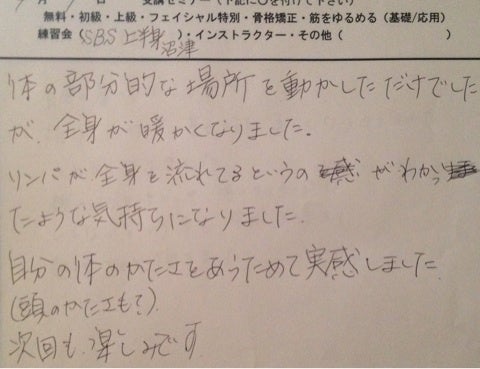 受講セミナー（下記に○を付けて下さい）
無料・初級・上級・フェイシャル特別・骨格矯正・筋をゆるめる（基礎/応用）
練習会（SBS上半身 沼津）・インストラクター・その他（
体の部分的な場所を動かしただけでした
が、全身が暖かくなりました。
リンパが全身を流れてるというのがわかっ
たような気持ちになりました。
自分の体のかたさをあらためて実感しました
（頭のかたさも？）
次回も楽しみです